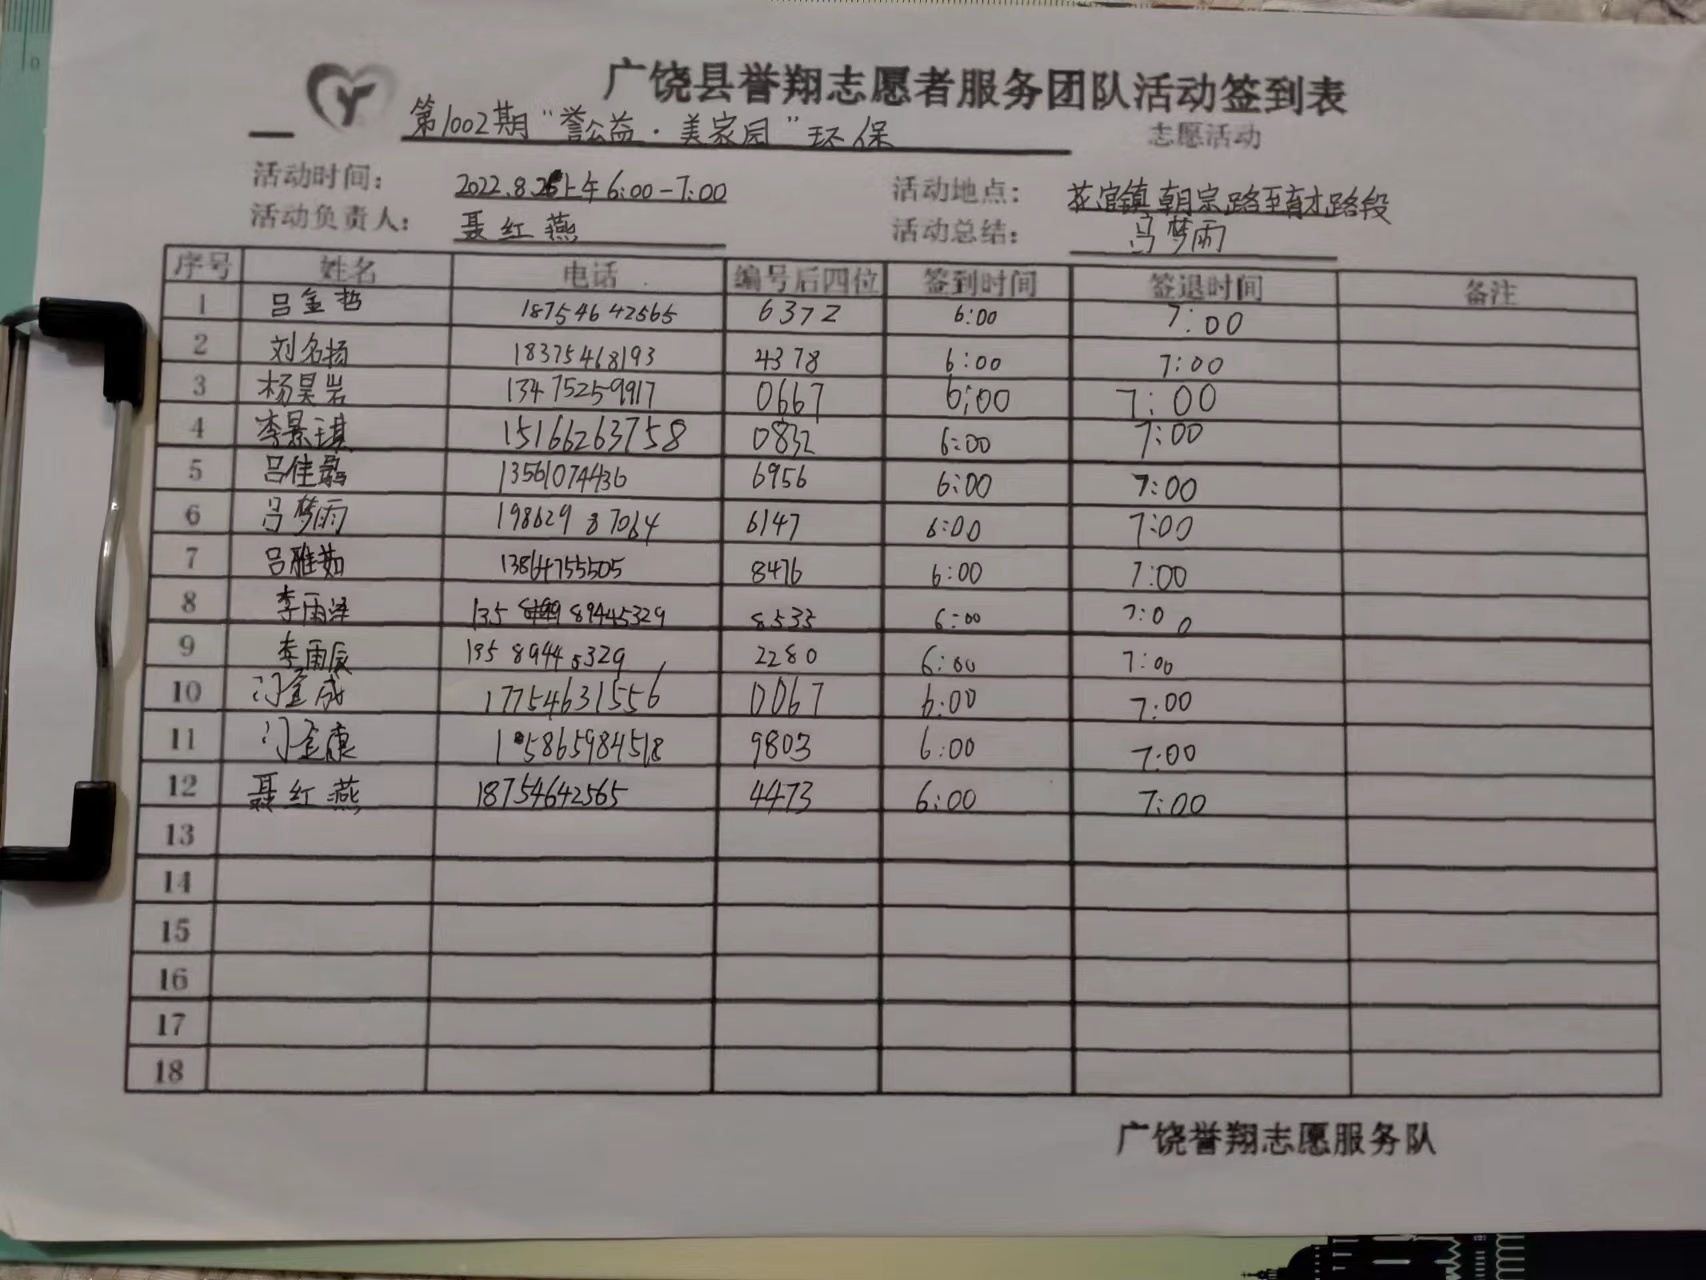 广饶县誉翔志愿者服务团队活动签到表
第1002期“誉公益·美家园”环保 志愿活动
活动时间： 2022.8.26上午6:00-7:00 活动地点： 花官镇朝宗路至育才路段
活动负责人： 聂红燕 活动总结： 吕梦雨
序号 姓名 电话 编号后四位 签到时间 签退时间 备注
1 吕金哲 18754642565 6372 6:00 7:00
2 刘名扬 18375468193 4378 6:00 7:00
3 杨昊岩 13475259917 0667 6:00 7:00
4 李景琪 15166263758 0832 6:00 7:00
5 吕佳 13561074436 6956 6:00 7:00
6 吕梦雨 19862987064 6147 6:00 7:00
7 吕雅茹 13864755505 8476 6:00 7:00
8 李雨泽 135 89445329 8533 6:00 7:00
9 李雨辰 13589445329 2280 6:00 7:00
10 门金成 17754631556 0067 6:00 7:00
11 门金康 15865984518 9803 6:00 7:00
12 聂红燕 18754642565 4473 6:00 7:00
13
14
15
16
17
18
广饶誉翔志愿服务队